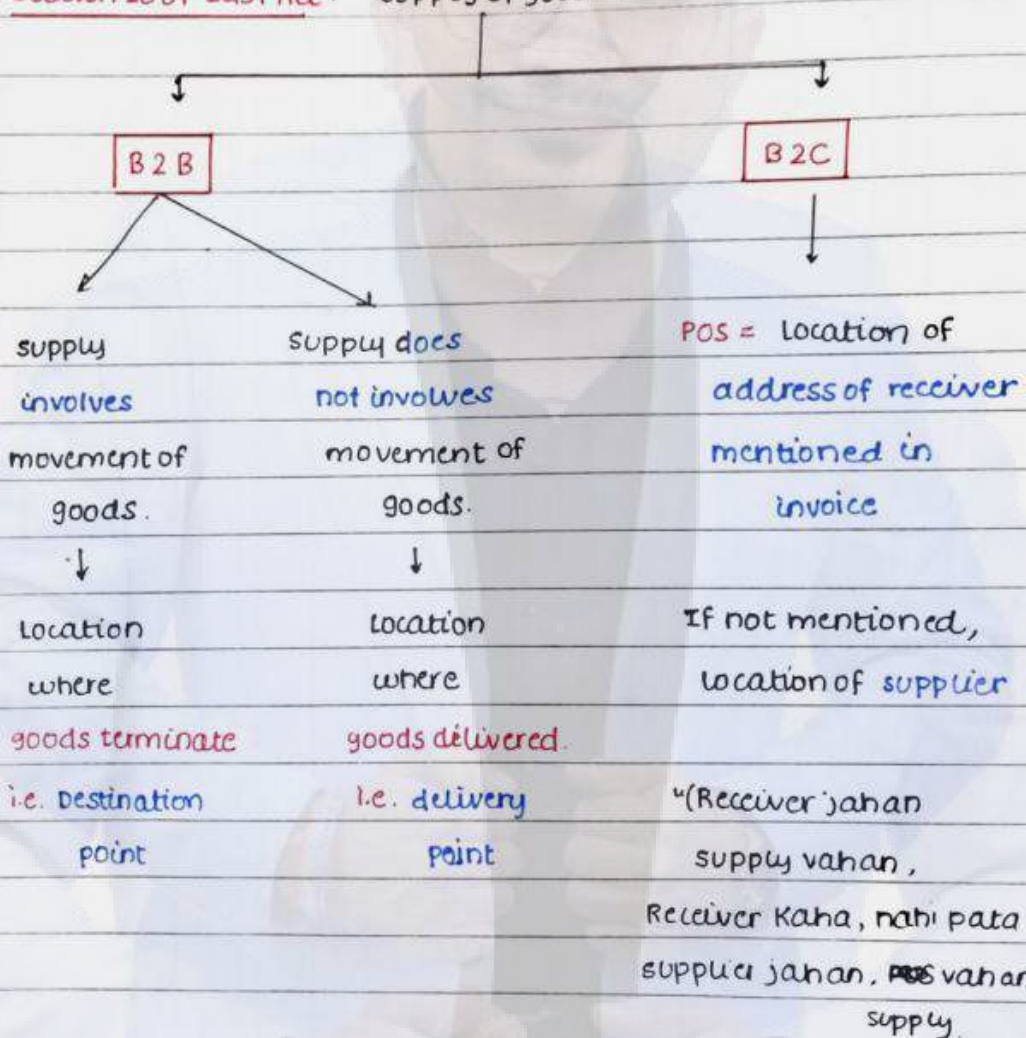 B2B
B2C
supply
involves
movement of
goods.
↓
Location
where
goods terminate
i.e. Destination
point
supply does
not involves
movement of
goods.
↓
Location
where
goods delivered.
i.e. delivery
point
POS = Location of
address of receiver
mentioned in
invoice
If not mentioned,
location of supplier
"(Receiver jahan
supply vahan,
Receiver Kaha, nahi pata
supplier jahan, vahan
supply